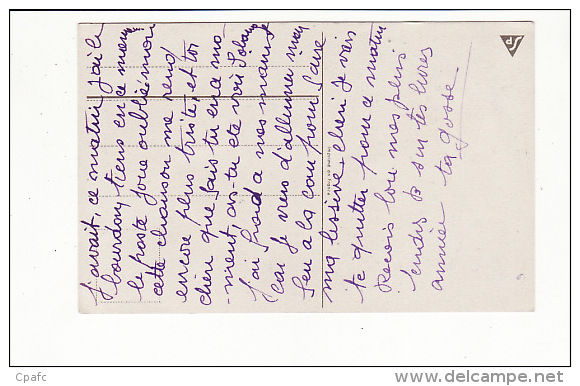 J'avait, ce matin j'ai le
bourdon, tiens en ce moment
le poste joue oublie moi
cette chanson me rend
encore plus triste, et toi
chéri que fais tu en ce mo-
ment, as-tu été voir
j'ai froid a mes mains
car je viens d'allumer mon
feu a la cour pour faire
ma lessive. chéri je vais
te quitter pour ce matin
Recois tou mes plus
tendres B sur tes levres
ta gosse.
delcampe.net
Cpafc